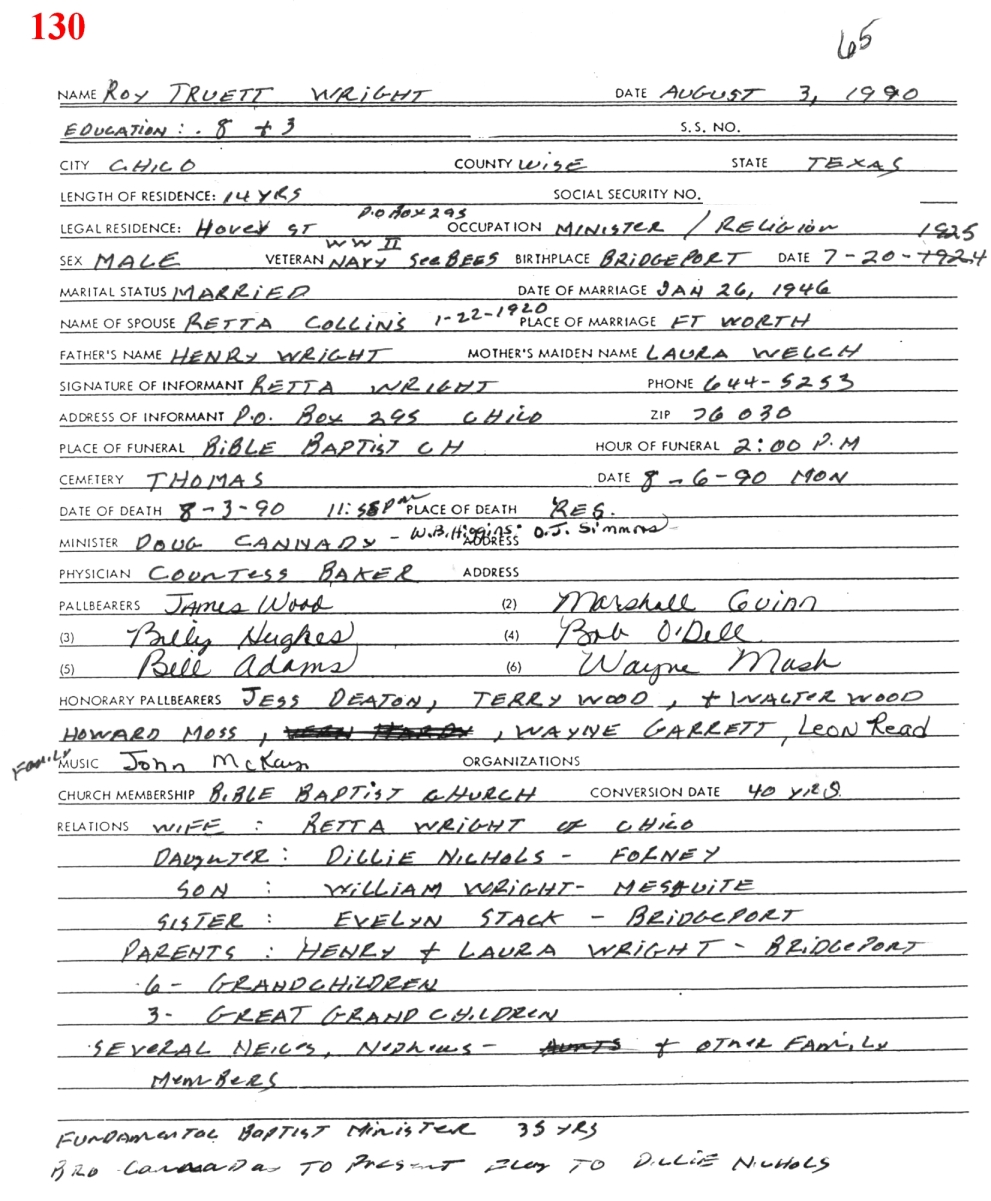 130
65
NAME ROY TRUETT WRIGHT DATE AUGUST 3, 1990
EDUCATION: . 8 + 3 S.S. NO.
CITY CHICO COUNTY WISE STATE TEXAS
LENGTH OF RESIDENCE: 14 YRS SOCIAL SECURITY NO.
P.O BOX 295
LEGAL RESIDENCE: HOVEY ST OCCUPATION MINISTER / RELIGION 1925
WW II
SEX MALE VETERAN NAVY SEEBEES BIRTHPLACE BRIDGEPORT DATE 7-20-1924
MARITAL STATUS MARRIED DATE OF MARRIAGE JAN 26, 1946
NAME OF SPOUSE RETTA COLLINS 1-22-1920 PLACE OF MARRIAGE FT WORTH
FATHER'S NAME HENRY WRIGHT MOTHER'S MAIDEN NAME LAURA WELCH
SIGNATURE OF INFORMANT RETTA WRIGHT PHONE 644-5253
ADDRESS OF INFORMANT P.O. BOX 295 CHICO ZIP 76030
PLACE OF FUNERAL BIBLE BAPTIST CH HOUR OF FUNERAL 2:00 P.M
CEMETERY THOMAS DATE 8-6-90 MON
DATE OF DEATH 8-3-90 11:55 PM PLACE OF DEATH RES.
MINISTER DOUG CANNADY - W.B. Higgins ADDRESS O.J. Simmons
PHYSICIAN COUNTESS BAKER ADDRESS
PALLBEARERS James Wood (2) Marshall Guinn
(3) Billy Hughes (4) Bob O'Dell
(5) Bill Adams (6) Wayne Mash
HONORARY PALLBEARERS JESS DEATON, TERRY WOOD, + WALTER WOOD
HOWARD MOSS, , WAYNE GARRETT, Leon Read
Family MUSIC John McKay ORGANIZATIONS
CHURCH MEMBERSHIP BIBLE BAPTIST CHURCH CONVERSION DATE 40 YRS.
RELATIONS WIFE : RETTA WRIGHT OF CHICO
DAUGHTER : DILLIE NICHOLS - FORNEY
SON : WILLIAM WRIGHT - MESQUITE
SISTER : EVELYN STACK - BRIDGEPORT
PARENTS : HENRY + LAURA WRIGHT - BRIDGEPORT
6 - GRANDCHILDREN
3 - GREAT GRAND CHILDREN
SEVERAL NEICES, NEPHEWS - AUNTS + OTHER FAMILY
MEMBERS
FUNDAMENTAL BAPTIST MINISTER 35 YRS
BRO TO PRESENT FLAG TO DILLIE NICHOLS